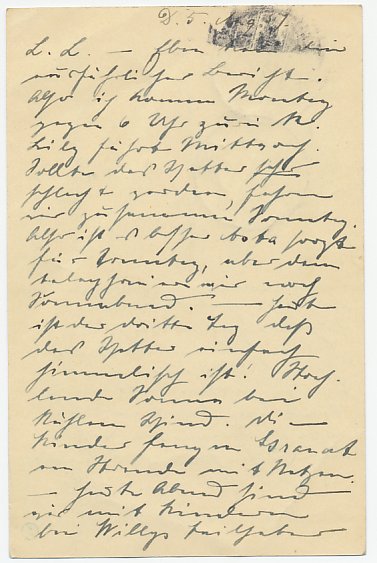 D. 5. Aug
L. L. – Eben kam dein
ausführlicher Bericht.
Also ich komme Montag
gegen 6 Uhr zurück.
Lily fährt Mittwoch.
Sollte das Wetter sehr
schlecht werden, fahren
wir zusammen Sonntag.
Also ist es besser sorgt
für Sonntag, aber dann
telephonieren wir noch
Sonnabend. – Heute
ist der dritte Tag daß
das Wetter einfach
himmlisch ist!
lende Sonne bei
kühlem Wind. Die –
Kinder fangen Granat
am Strande mit Netzen.
– Heute Abend sind
wir mit Kindern
bei Willys